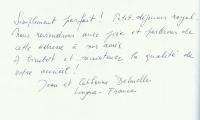 Simplement parfait ! Petit-déjeuner royal.
Nous reviendrons avec joie et parlerons de
cette adresse à nos amis.
A bientôt et maintenez la qualité de
votre accueil !
Jean et Catherine
France